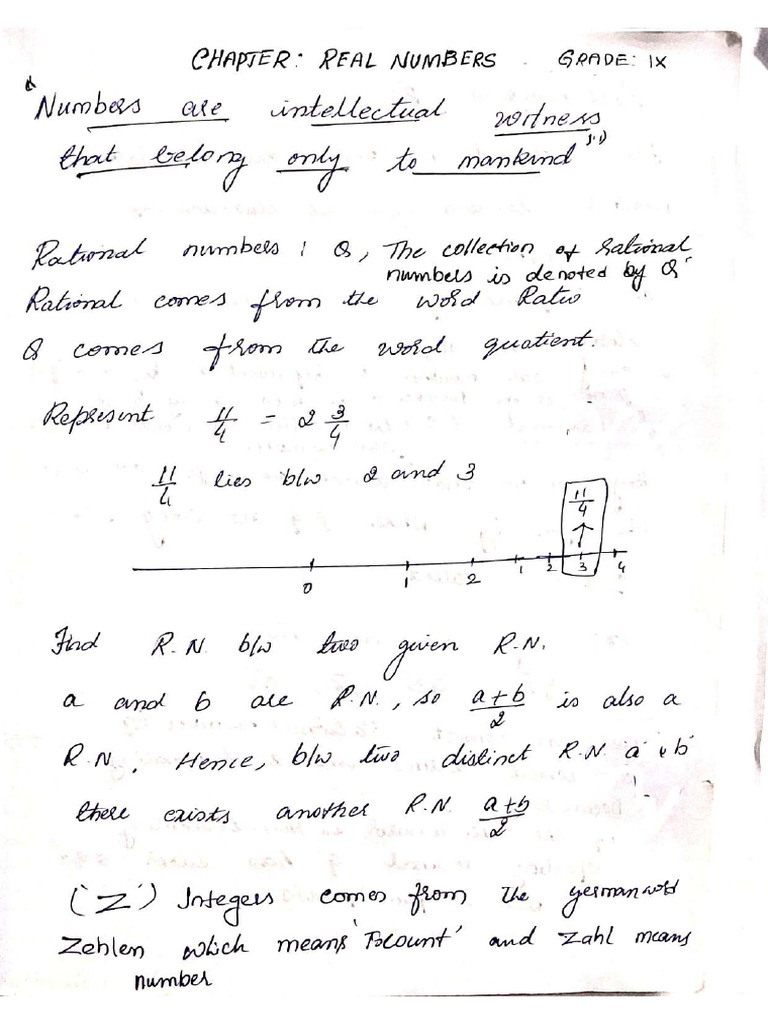 CHAPTER: REAL NUMBERS. GRADE: IX
Numbers are intellectual witness
that belong only to mankind
Rational numbers : Q, The collection of rational
numbers is denoted by Q
Rational comes from the word Ratio
Q comes from the word quatient.
Represent 11/4 = 2 3/4
11/4 lies b/w 2 and 3
11/4
0 1 2 1 2 3 4
Find R.N. b/w two given R.N.
a and b are R.N., so a+b/2 is also a
R.N. Hence, b/w two distinct R.N 'a' & 'b'
there exists another R.N. a+b/2
('Z') Integers comes from the german word
Zehlen which means 'To count' and Zahl means
number